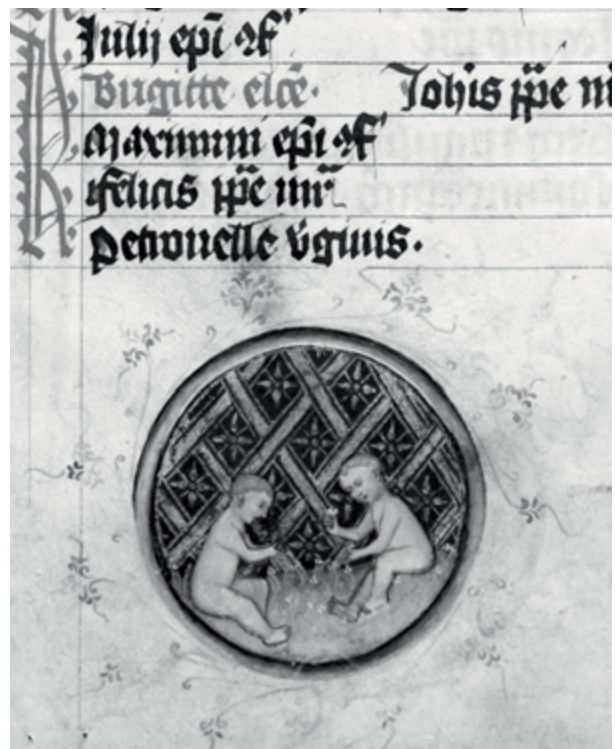 Julij epi ⁊ ꝯf
Brigitte elcē. Joh̄is ppe m
Maximini epi ⁊ ꝯf
felicis ppe mr̄
petronelle v̄ginis.